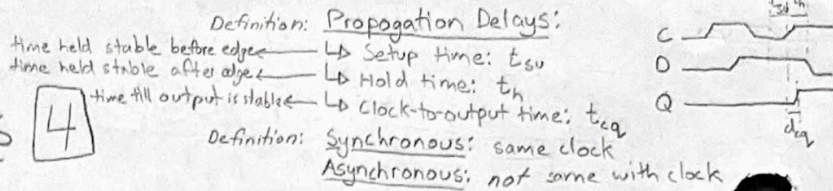 Definition: Propogation Delays:
time held stable before edge ← ↳ Setup time: tsu
time held stable after edge ← ↳ Hold time: th
time till output is stable ← ↳ Clock-to-output time: tcq
4
Definition: Synchronous: same clock
Asynchronous: not same with clock
C
D
Q
dcq